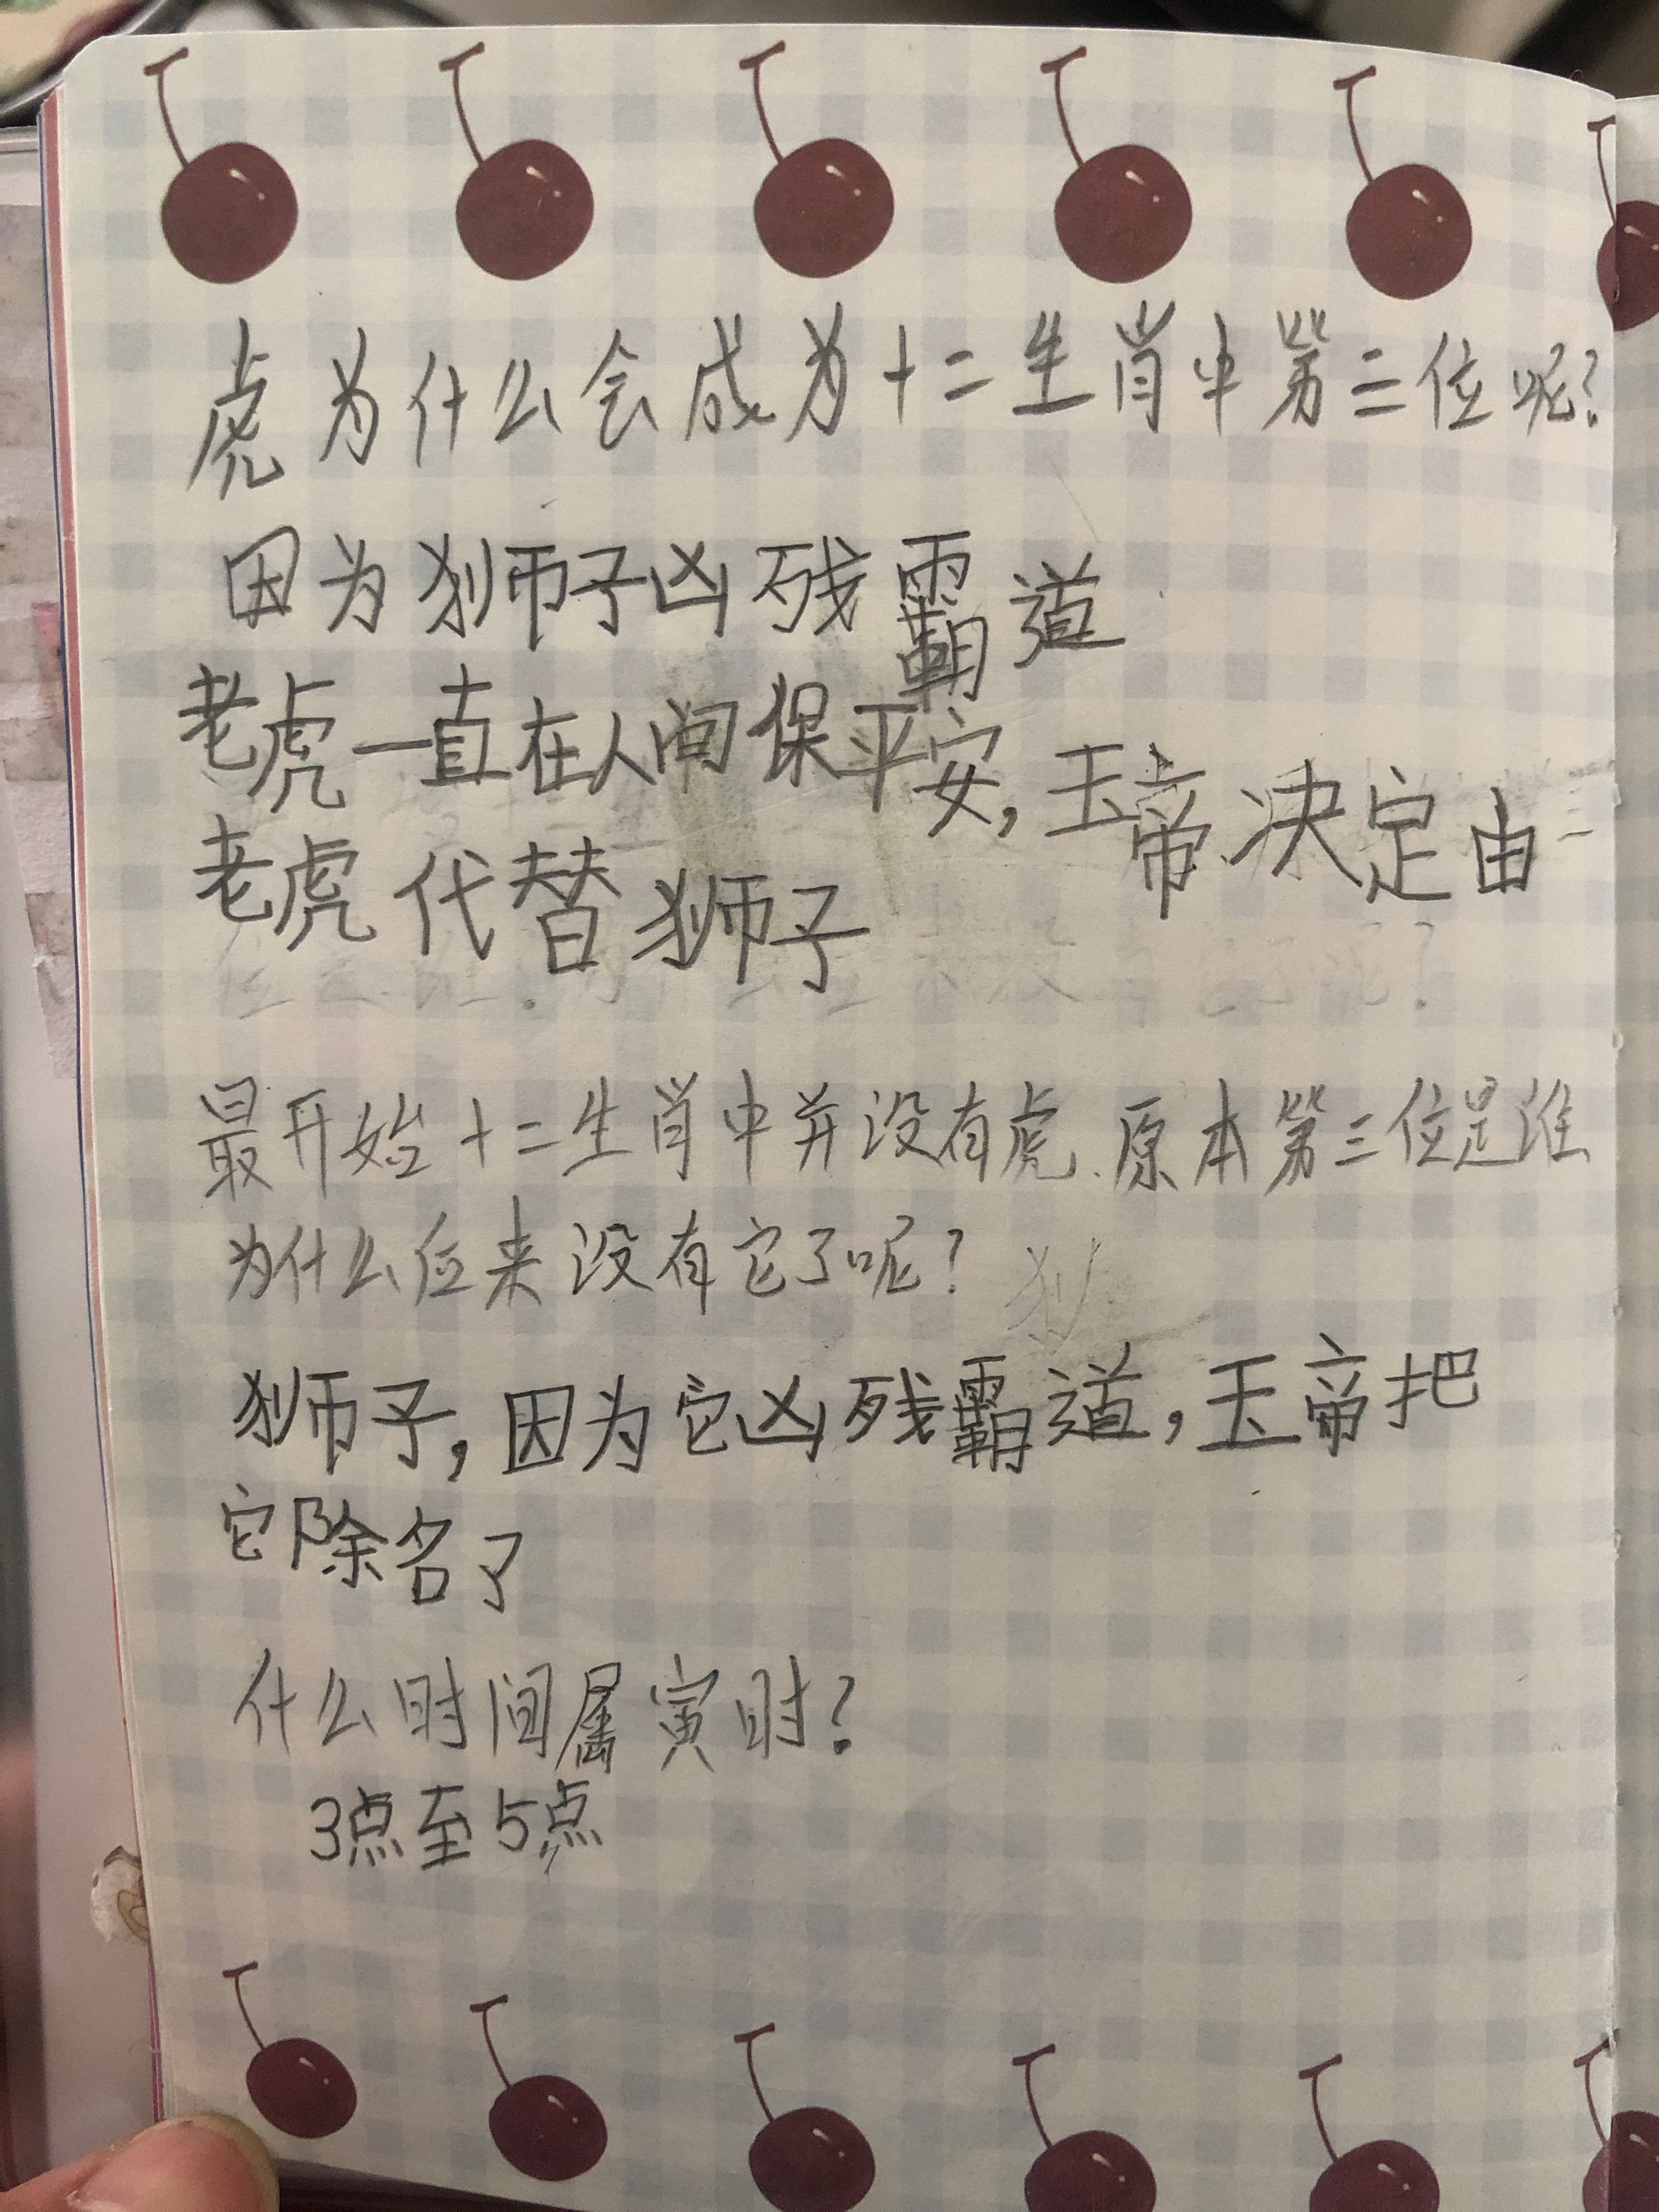 虎为什么会成为十二生肖中第三位呢?
因为狮子凶残霸道
老虎一直在人间保平安,玉帝决定由
老虎代替狮子
最开始十二生肖中并没有虎.原本第三位是谁
为什么后来没有它了呢?
狮子,因为它凶残霸道,玉帝把
它除名了
什么时间属寅时?
3点至5点